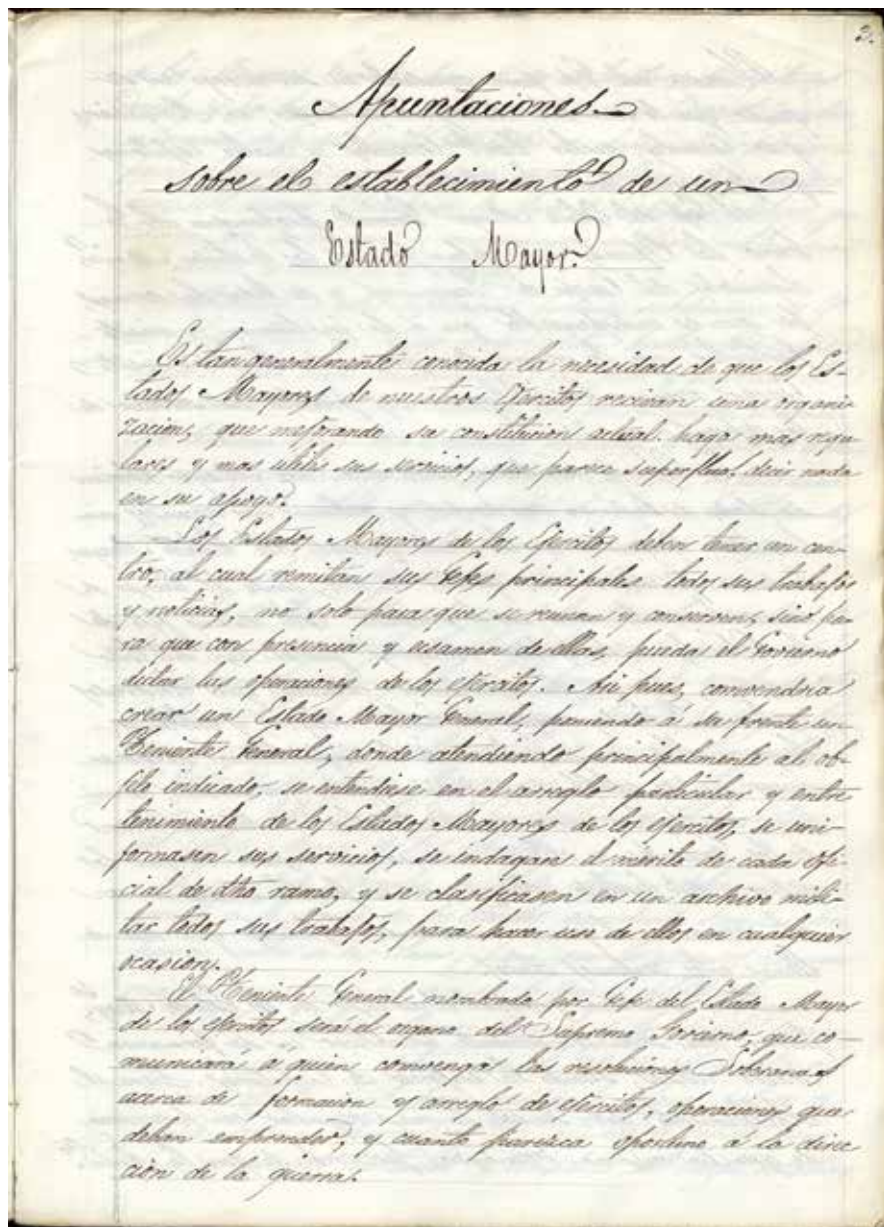 2.
Apuntaciones
sobre el establecimiento de un
Estado Mayor.
Es tan generalmente conocida la necesidad de que los Es-
tados Mayores de nuestros Ejercitos recivan una organi-
zacion, que mejorando su constitucion actual haga mas regu-
lares y mas utiles sus servicios, que parece superfluo decir nada
en su apoyo.
Los Estados Mayores de los Ejercitos deben tener un cen-
tro, al cual remitan sus Gefes principales todos sus trabajos
y noticias, no solo para que se reunan y conserven, sino pa-
ra que con presencia y esamen de ellas, pueda el Govierno
dictar las operaciones de los ejercitos. Asi pues, convendria
crear un Estado Mayor General, poniendo á su frente un
Theniente General, donde atendiendo principalmente al ob-
jeto indicado, se entendiese en el arreglo particular y entre
tenimiento de los Estados Mayores de los ejercitos, se uni-
formasen sus servicios, se indagase el merito de cada ofi-
cial de dho ramo, y se clasificasen en un archivo mili-
tar todos sus trabajos, para hacer uso de ellos en cualquier
ocasion.
El Theniente General nombrado por Gefe del Estado Mayor
de los ejercitos será el organo del Supremo Govierno, que co-
municará á quien convenga las resoluciones Soberanas
acerca de formacion y arreglo de ejercitos, operaciones que
deban emprender, y cuanto parezca oportuno á la direc
cion de la guerra.